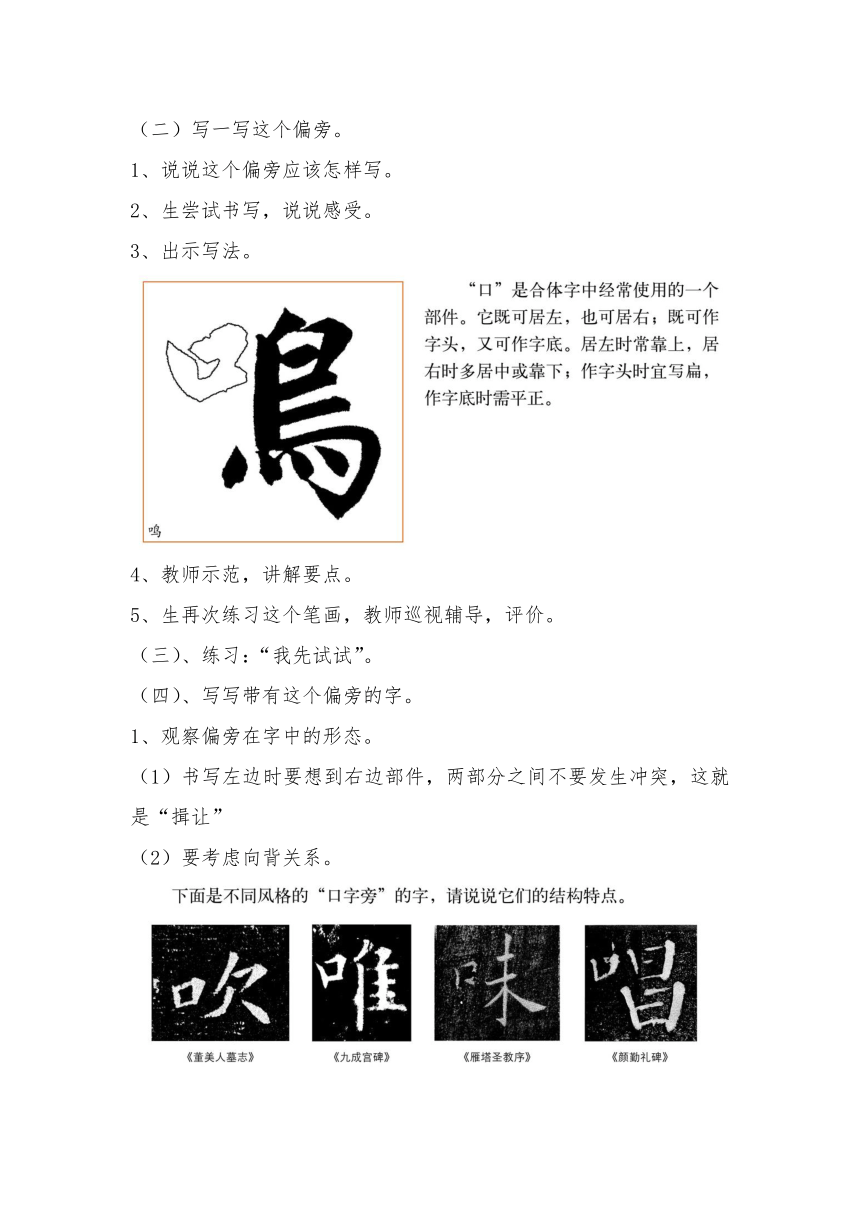 （二）写一写这个偏旁。
1、说说这个偏旁应该怎样写。
2、生尝试书写，说说感受。
3、出示写法。
鳴
鸣
“口”是合体字中经常使用的一个
部件。它既可居左，也可居右；既可作
字头，又可作字底。居左时常靠上，居
右时多居中或靠下；作字头时宜写扁，
作字底时需平正。
4、教师示范，讲解要点。
5、生再次练习这个笔画，教师巡视辅导，评价。
（三）、练习：“我先试试”。
（四）、写写带有这个偏旁的字。
1、观察偏旁在字中的形态。
（1）书写左边时要想到右边部件，两部分之间不要发生冲突，这就
是“揖让”
（2）要考虑向背关系。
下面是不同风格的“口字旁”的字，请说说它们的结构特点。
吹 唯 味 唱
《董美人墓志》 《九成宫碑》 《雁塔圣教序》 《颜勤礼碑》